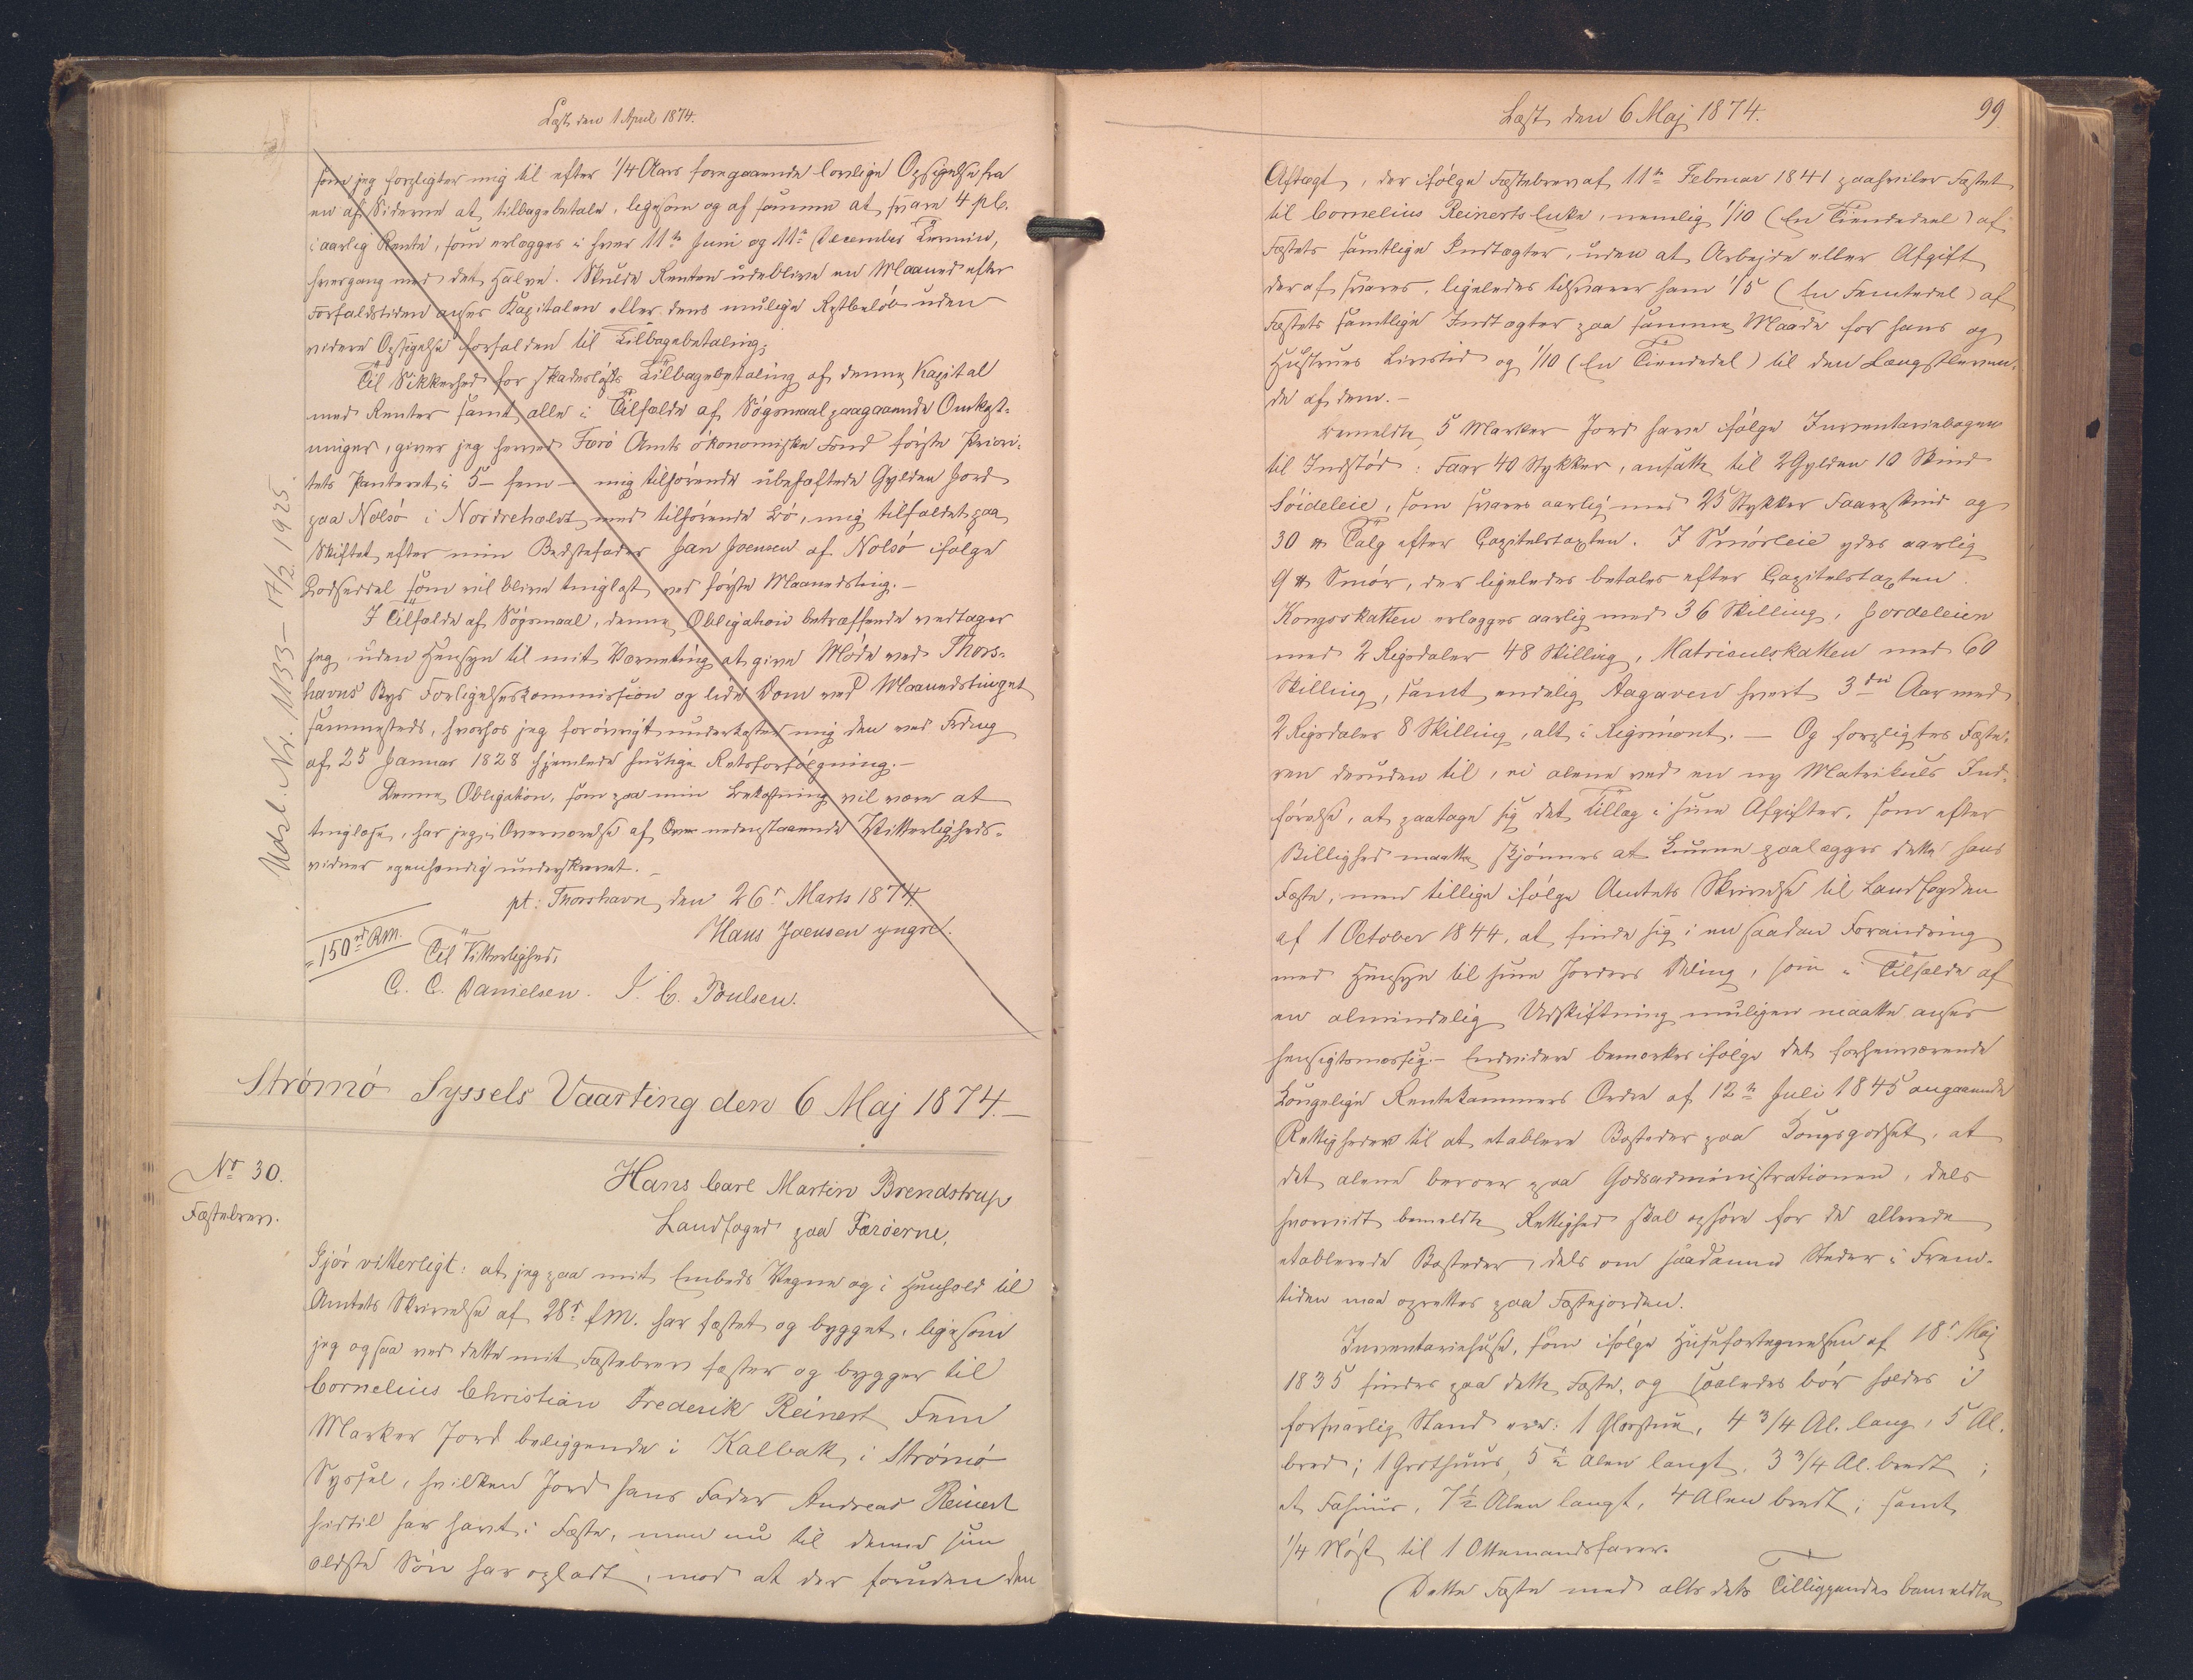 Læst den 1 April 1874.
som jeg forpligter mig til efter 1/4 Aars foregaaende lovlige Opsigelse fra
en af Siderne at tilbagebetale, ligesom og af samme at svare 4 pCt.
i aarlig Rente, som erlægges i hver 11te Juni og 11te December Termin,
hvergang med det Halve. Skulde Renten udeblive en Maaned efter
Forfaldstiden anses Kapitalen eller dens mulige Restbeløb uden
videre Opsigelse forfalden til Tilbagebetaling;
Til Sikkerhed for skadesløs Tilbagebetaling af denne Kapital
med Renter samt alle i Tilfælde af Søgsmaal paagaaende Omkost-
ninger, giver jeg herved Færø Amts økonomiske Fond første Priori-
tets Panteret i 5 – fem – mig tilhørende ubehæftede Gylden Jord
paa Nolsø i Nordreholdt med tilhørende Bø, mig tilfaldet paa
Skiftet efter min Bedstefader Jan Joensen af Nolsø ifølge
Lodseddel som vil blive tinglæst ved første Maanedsting.–
I Tilfælde af Søgsmaal, denne Obligation betræffende vedtager
jeg uden Hensyn til mit Værneting at give Møde ved Thors-
havns Bys Forligelseskommission og lide Dom ved Maanedstinget
sammesteds, hvorhos jeg forøvrigt underkaster mig den ved Frdng
af 25 Januar 1828 hjemlede hurtige Retsforfølgning.–
Denne Obligation, som paa min Bekostning vil være at
tinglæse, har jeg i Overværelse af nedenstaaende Vitterligheds-
vidner egenhændig underskrevet.
pt: Thorshavn den 26r Marts 1874.
Hans Joensen yngre.
150 rd RM.
Til Vitterlighed:
C. C. Danielsen. J. C. Poulsen.
Udsl. Nr. 1133 – 17/2 1925.
Strømø Syssels Vaarting den 6 Maj 1874.–
Nr 30.
Fæstebrev.
Hans Carl Martin Brendstrup
Landfoged paa Færöerne,
Gjör vitterligt: at jeg paa mit Embeds Vegne og i Henhold til
Amtets Skrivelse af 28r f.M. har fæstet og bygget, ligesom
jeg ogsaa ved dette mit Fæstebrev fæster og bygger til
Cornelius Christian Frederik Reinert Fem
Marker Jord beliggende i Kalbak i Strømø
Syssel, hvilken Jord hans Fader Andreas Reinert
hidtil har havt i Fæste, men nu til denne sin
ældste Søn har opladt, mod at der foruden den
Læst den 6 Maj 1874.
99
Aftægt, der ifølge Fæstebrev af 11te Februar 1841 paahviler Fæstet
til Cornelius Reinerts Enke, nemlig 1/10 (En Tiendedeel) af
Fæstets samtlige Indtægter, uden at Arbejde eller Afgift
deraf svares, ligeledes tilsvarer ham 1/5 (En Femtedel) af
Fæstets samtlige Indtægter paa samme Maade for hans og
Hustrues Livstid og 1/10 (En Tiendedel) til den Længstleven-
de af dem.–
Bemeldte 5 Marker Jord have ifølge Inventariebogen
til Indstød: Faar 40 Stykker, ansatte til 2 Gylden 10 Skind
Søideleie, som svares aarlig med 25 Stykker Faareskind og
30 ℔ Talg efter Capitelstaxten. I Smørleie ydes aarlig
9 ℔ Smør, der ligeledes betales efter Capitelstaxten.
Kongsskatten erlægges aarlig med 36 Skilling, Jordeleien
med 2 Rigsdaler 48 Skilling, Matriculskatten med 60
Skilling, samt endelig Aagaven hvert 3die Aar med
2 Rigsdaler 8 Skilling, alt i Rigsmønt. – Og forpligtes Fæste-
ren desuden til, ei alene ved en ny Matrikuls Ind-
førelse, at paatage sig det Tillæg i sine Afgifter, som efter
Billighed maatte skjønnes at kunne paalægges dette hans
Fæste, men tillige ifølge Amtets Skrivelse til Landfogden
af 1 October 1844, at finde sig i en saadan Forandring
med Hensyn til sine Jorders Deling, som i Tilfælde af
en almindelig Udskiftning muligen maatte anses
hensigtsmæssig.– Endvidere bemærkes ifølge det forhenværende
Kongelige Rentekammers Ordre af 12te Juli 1845 angaaende
Rettigheden til at etablere Bosteder paa Kongsgodset, at
det alene beroer paa Godsadministrationen, dels
hvorvidt bemeldte Rettighed skal ophøre for de allerede
etablerede Bosteder, dels om saadanne Steder i Frem-
tiden maa oprettes paa Fæstejorden.
Inventariehuse, som ifølge Husefortegnelsen af 18r Maj
1835 findes paa dette Fæste, og saaledes bør holdes i
forsvarlig Stand ere: 1 Glasstue, 4 3/4 Al. lang, 5 Al.
bred; 1 Grothuus, 5 1/2 Alen langt, 3 3/4 Al. bredt;
et Fæhuus, 7 1/2 Alen langt, 4 Alen bredt; samt
1/4 Nøst til 1 Ottemandsfarer.
Dette Fæste med alle dets Tilliggender bemeldte